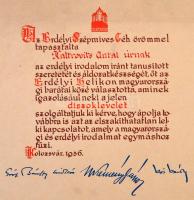 Az Erdélyi Szépmíves Céh örömmel
tapasztalta
Antal úrnak
az erdélyi irodalom iránt tanusított
szeretetét és áldozatkészségét, őt az
Erdélyi Helikon magyarorszá-
gi barátai közé választotta, aminek
igazolásául neki a jelen
díszoklevelet
szolgáltatjuk ki kérve, hogy ápolja to-
vábbra is azt az elszakíthatatlan lel-
ki kapcsolatot, amely a magyarorszá-
gi és erdélyi irodalmat egymáshoz
fűzi.
Kolozsvár, 1936.